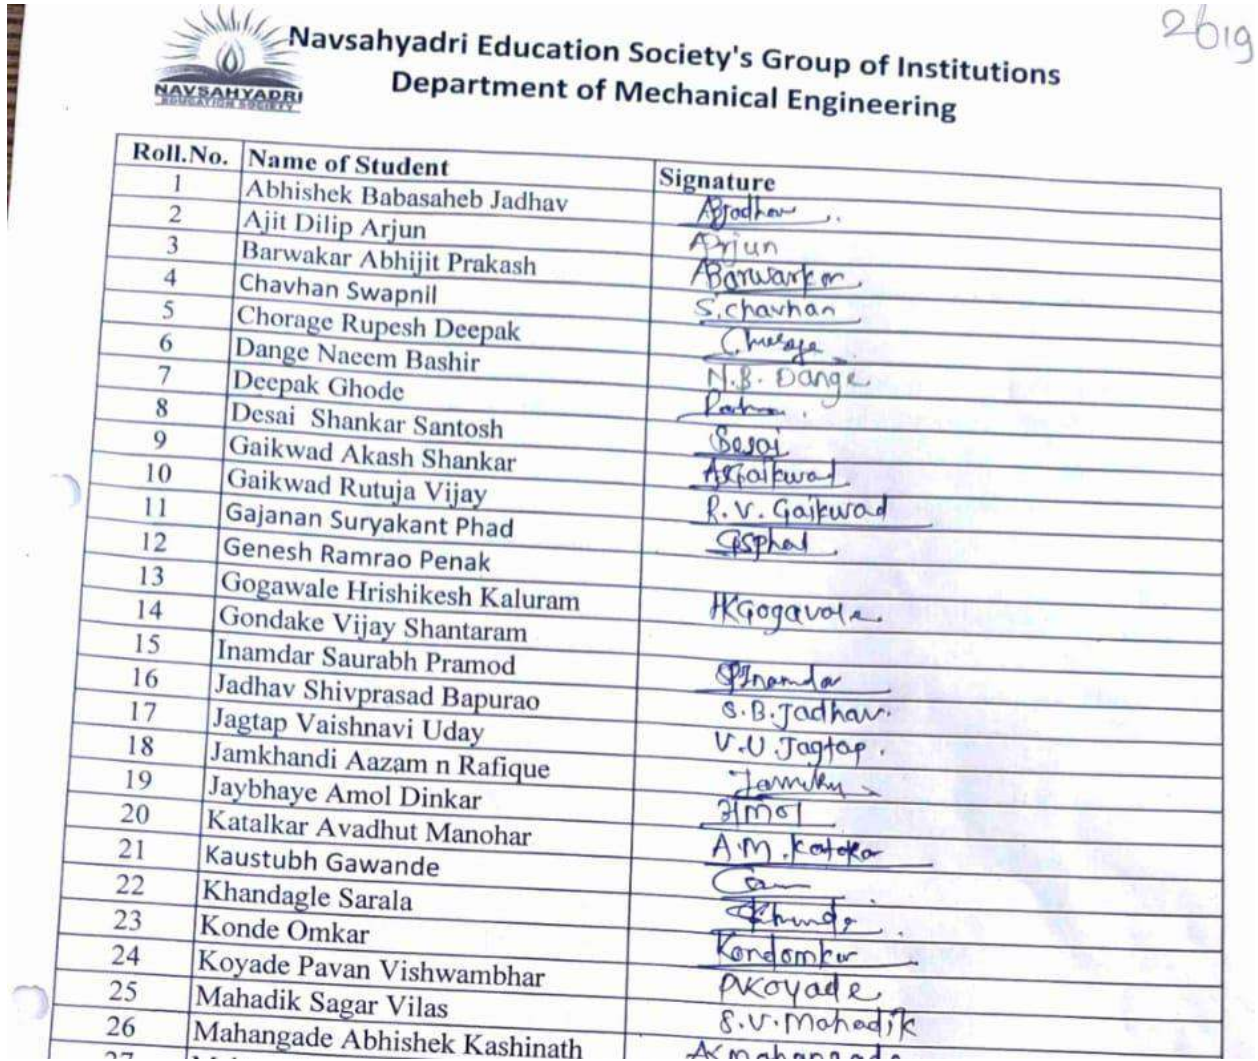 2019
NAVSAHYADRI
EDUCATION SOCIETY
Navsahyadri Education Society's Group of Institutions
Department of Mechanical Engineering
Roll.No. Name of Student Signature
1 Abhishek Babasaheb Jadhav ABJadhav
2 Ajit Dilip Arjun Arjun
3 Barwakar Abhijit Prakash ABarwarkar
4 Chavhan Swapnil S.chavhan
5 Chorage Rupesh Deepak
6 Dange Naeem Bashir N.B. Dange
7 Deepak Ghode
8 Desai Shankar Santosh Desai
9 Gaikwad Akash Shankar ASGaikwad
10 Gaikwad Rutuja Vijay R.V. Gaikwad
11 Gajanan Suryakant Phad GSphad
12 Genesh Ramrao Penak
13 Gogawale Hrishikesh Kaluram HKGogavale
14 Gondake Vijay Shantaram
15 Inamdar Saurabh Pramod SPInamdar
16 Jadhav Shivprasad Bapurao S.B.Jadhav
17 Jagtap Vaishnavi Uday V.U Jagtap.
18 Jamkhandi Aazam n Rafique
19 Jaybhaye Amol Dinkar Amol
20 Katalkar Avadhut Manohar A.M.
21 Kaustubh Gawande
22 Khandagle Sarala
23 Konde Omkar Kondomkar
24 Koyade Pavan Vishwambhar PVKoyade
25 Mahadik Sagar Vilas S.V.Mahadik
26 Mahangade Abhishek Kashinath AKmahangade
27